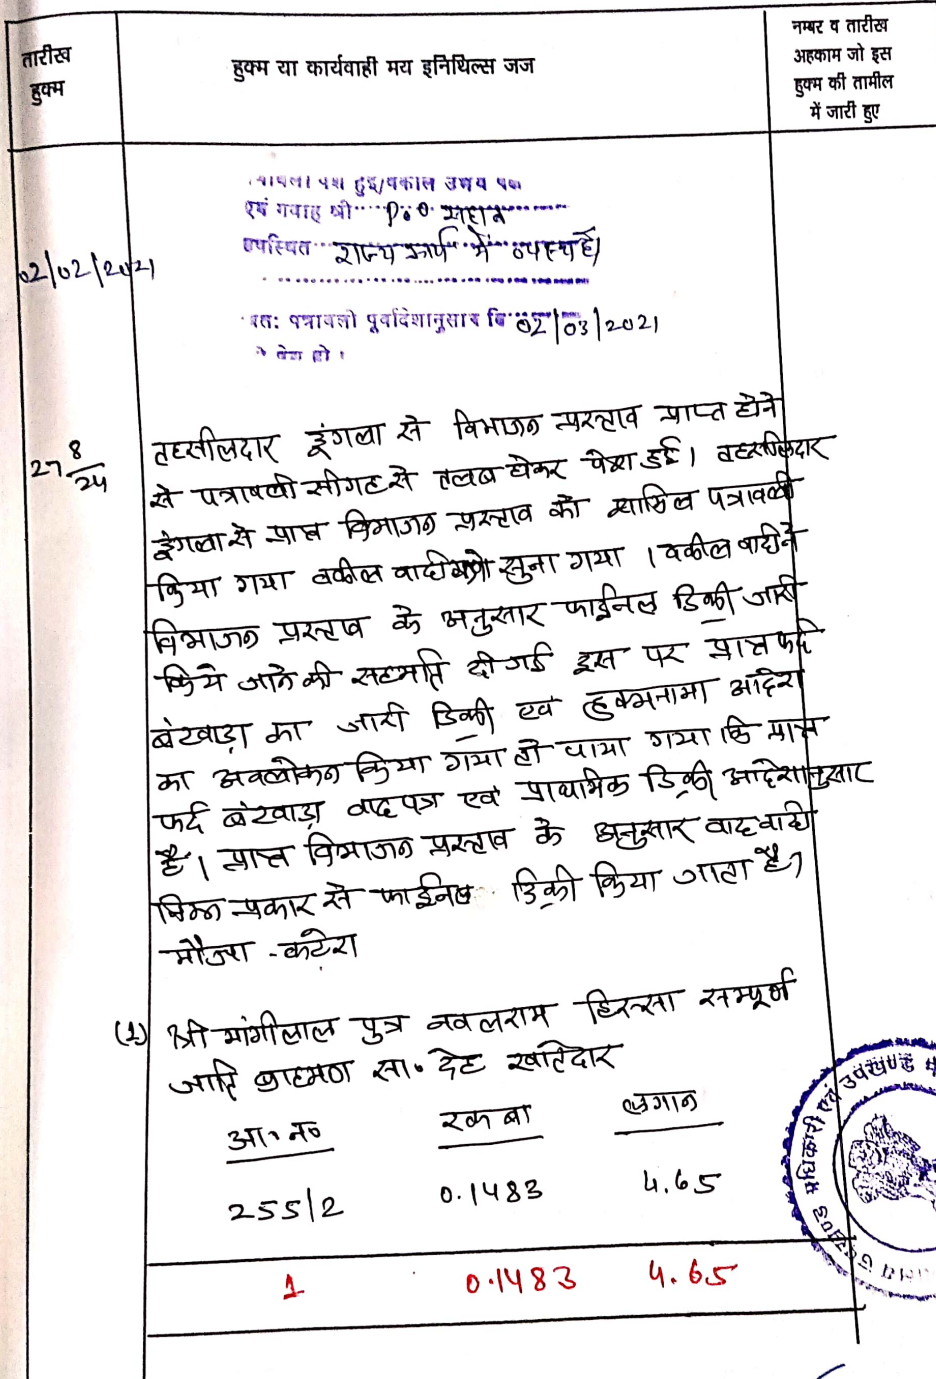 तारीख
हुक्म
हुक्म या कार्यवाही मय इनिथिल्स जज
नम्बर व तारीख
अहकाम जो इस
हुक्म की तामील
में जारी हुए
02/02/2021
पत्रावली पेश हुई/वकील उभय पक्ष
एवं गवाह श्री P.O. महोदय
उपस्थित राज्य कार्य में व्यस्त है।
अतः पत्रावली पूर्वादेशानुसार दि 02/03/2021
को पेश हो।
27 8/24
तहसीलदार डूंगला से विभाजन प्रस्ताव प्राप्त होने
से पत्रावली सीगह से तलब होकर पेश हुई। तहसीलदार
डूंगला से प्राप्त विभाजन प्रस्ताव को शामिल पत्रावली
किया गया वकील वादी को सुना गया। वकील वादी ने
विभाजन प्रस्ताव के अनुसार फाईनल डिक्री जारी
किये जाने की सहमति दी गई इस पर प्राप्त फर्द
बंटवाड़ा का जारी डिक्री एवं हुक्मनामा आदेश
का अवलोकन किया गया तो पाया गया कि प्राप्त
फर्द बंटवाड़ा वादपत्र एवं प्राथमिक डिक्री आदेशानुसार
है। प्राप्त विभाजन प्रस्ताव के अनुसार वाद वादी
निम्न प्रकार से फाईनल डिक्री किया जाता है।
मौजा - कटेरा
(1) श्री मांगीलाल पुत्र नवलराम हिस्सा सम्पूर्ण
जाति ब्राह्मण सा. देह खातेदार
आ. न० रकबा लगान
255/2 0.1483 4.65
1 0.1483 4.65
अधिकारी एवं उपखण्ड